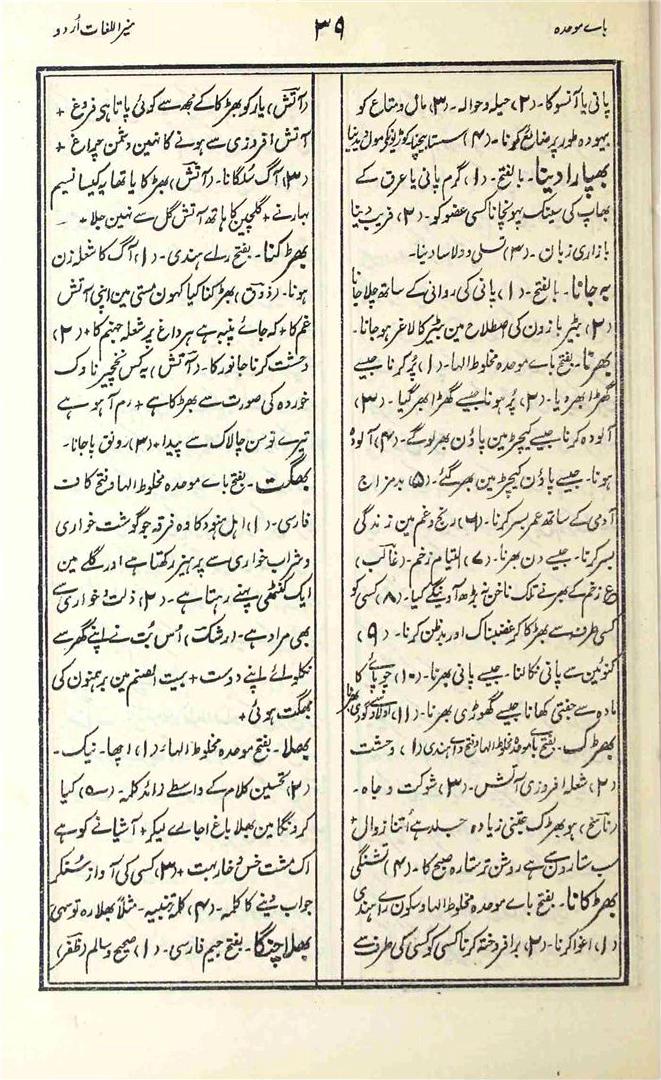 باے موحدہ
۳۹
منیر اللغات اُردو
پانی یا آنسو کا۔ (۲) حیلہ و حوالہ۔ (۳) مال و متاع کو
بیہودہ طور پر ضائع کرنا۔ (۴) سستا بیچنا کوڑیونکے مول دیدینا
بھپارا دینا۔ بالفتح۔ (۱) گرم پانی یا عرق کے
بھاپ کی سینک پہونچانا کسی عضو کو۔ (۲) فریب دینا
بازاری زبان۔ (۳) تسلی و دلاسا دینا۔
بہ جانا۔ بالفتح۔ (۱) پانی کی روانی کے ساتھ چلا جانا
(۲) بٹیر بازون کی اصطلاح مین بٹیر کا لاغر ہو جانا۔
بھرنا۔ بفتح باے موحدہ مخلوط الہا۔ (۱) پُر کرنا جیسے
گھڑا بھر دیا۔ (۲) پُر ہونا جیسے گھڑا بھر گیا۔ (۳)
آلودہ کرنا جیسے کیچڑ مین پاؤن بھر لوگے۔ (۴) آلودہ
ہونا۔ جیسے پاؤن کیچڑ مین بھر گئے۔ (۵) بد مزاج
آدمی کے ساتھ عمر بسر کرنا۔ (۶) رنج و غم مین زندگی
بسر کرنا۔ جیسے دن بھرنا۔ (۷) التیام زخم۔ (غالب)
ع زخم کے بھرنے تک ناخن نہ بڑھ آوینگے کیا۔ (۸) کسی کو
کسی طرف سے بھڑکا کر غضبناک اور بدظن کرنا۔ (۹)
کنوئین سے پانی نکالنا۔ جیسے پانی بھرنا۔ (۱۰) چوپائے کا
مادہ سے جفتی کھانا جیسے گھوڑی بھرنا۔ (۱۱)
بھڑک۔ بفتح باے موحدہ مخلوط الہا و فتح راے ہندی (۱) وحشت
(۲) شعلہ افروزی آتش۔ (۳) شوکت و جاہ۔
(ناسخ) ہو بھڑک جتنی زیادہ جلد ہے اُتنا زوال +
سب ستارون سے ہے روشن تر ستارہ صبح کا۔ (۴) تشنگی
بھڑکانا۔ بفتح باے موحدہ مخلوط الہا و سکون راے ہندی
(۱) اغوا کرنا۔ (۲) برافروختہ کرنا کسی کو کسی کی طرف سے
(آتش) یار کو بھڑکا کے مجھ سے کوئی پاتا ہی فروغ +
آتش افروزی سے ہونے کا نہین دشمن چراغ +
(۳) آگ سُلگانا۔ (آتش) بھڑکایا تھا یہ کیسا نسیم
بہار نے + گلچین کا ہاتھ آتش گل سے نہین جلا +
بھڑکنا۔ بفتح راے ہندی۔ (۱) آگ کا شعلہ زن
ہونا۔ (ذوق) بھڑکنا کیا کہون مستی مین اپنی آتش
غم کا + کہ جائے پنبہ ہے ہر داغ پر شعلہ جہنم کا + (۲)
وحشت کرنا جانور کا۔ (آتش) یہ کس نخچیر ناوک
خوردہ کی صورت سے بھڑکا ہے + رم آہو ہے
تیرے توسن چالاک سے پیدا + (۳) رونق پا جانا۔
بھگت۔ بفتح باے موحدہ مخلوط الہا و فتح کاف
فارسی۔ (۱) اہل ہنود کا وہ فرقہ جو گوشت خواری
و شراب خواری سے پرہیز رکھتا ہے اور گلے مین
ایک کنٹھی پہنے رہتا ہے۔ (۲) ذلت و خواری سے
بھی مراد ہے۔ (رشک) اُس بُت نے اپنے گھر سے
نکلوائے اپنے دوست + بیت الصنم مین برہمنون کی
بھگت ہوئی +
بھلا۔ بفتح موحدہ مخلوط الہا۔ (۱) اچھا۔ نیک۔
(۲) تحسین کلام کے واسطے زائد کلمہ۔ کیا
کرونگا مین بھلا باغ اجارے لیکر + آشیانے کو ہے
اک مشت خس و خار بہت + (۳) کسی کی آواز سُنکر
جواب دینے کا کلمہ۔ (۴) کلمۂ تنبیہ۔ مثلاً بھلا رہ تو سہی
بھلا چنگا۔ بفتح جیم فارسی۔ (۱) صحیح و سالم (ظفر)